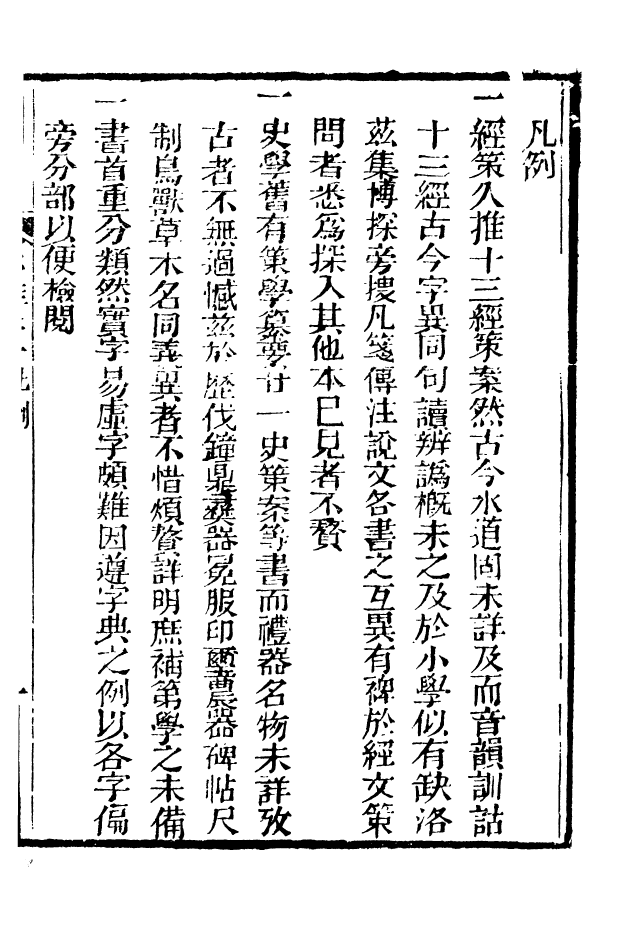 凡例
一經策久推十三經策案然古今水道固未詳及而音韻訓詁
十三經古今字異同句讀辨譌槪未之及於小學似有缺洛
茲集博探旁搜凡箋傳注說文各書之互異有裨於經文策
問者悉爲探入其他本巳見者不贅
一史學舊有策學纂要廿一史策案等書而禮器名物未詳攷
古者不無過憾茲於歷伐鐘鼎彝器冕服印璽農器碑帖尺
制鳥獸草木名同義異者不惜煩贅詳明庶補策學之未備
一書首重分類然實字易虛字頗難因遵字典之例以各字偏
旁分部以便檢閱
例
一